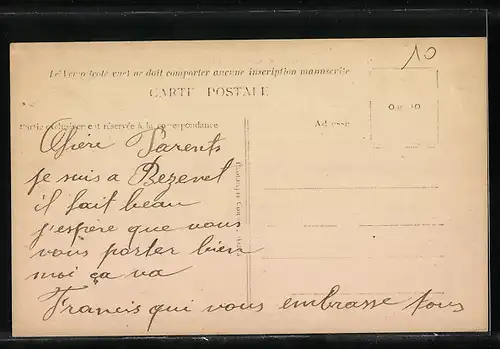 10
Le Verso (côté vue) ne doit comporter aucune inscription manuscrite
CARTE POSTALE
Partie exclusivement réservée à la correspondance
Adresse
Chère Parents
je suis a Bezenet
il fait beau
j'espère que vous
vous porter bien
moi ça va
Francis qui vous embrasse tous